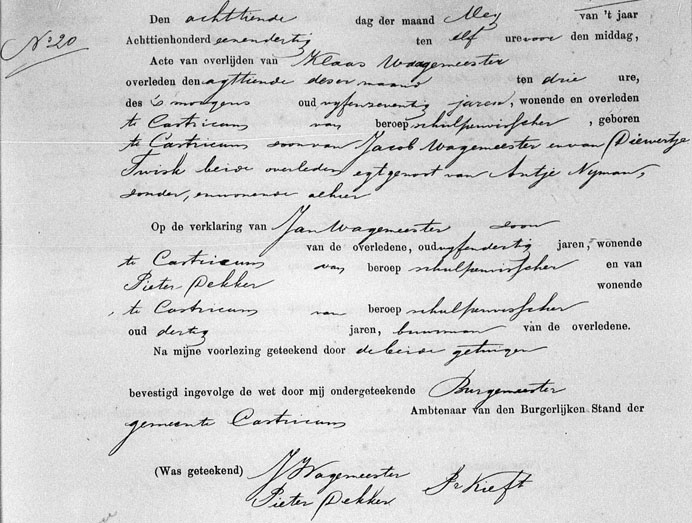 Den achttiende dag der maand Mey van 't jaar
No 20
Achttienhonderd eenendertig ten elf ure voor den middag,
Acte van overlijden van Klaas Wagemeester
overleden den agttiende deser maand ten drie ure,
des 's morgens oud vyfenseventig jaren, wonende en overleden
te Castricum van beroep schulpenvisscher, geboren
te Castricum soon van Jacob Wagemeester en van Diewertje
Twisk beide overleden egtgenoot van Antje Nyman,
sonder, inwonende alhier
Op de verklaring van Jan Wagemeester soon
van de overledene, oud vyfendertig jaren, wonende
te Castricum van beroep schulpenvisscher en van
Pieter Dekker wonende
te Castricum van beroep schulpenvisscher
oud dertig jaren, buurman van de overledene.
Na mijne voorlezing geteekend door de beide getuigen
bevestigd ingevolge de wet door mij ondergeteekende Burgemeester
Ambtenaar van den Burgerlijken Stand der
gemeente Castricum
(Was geteekend) J Wagemeester
Pieter Dekker Pr Kieft